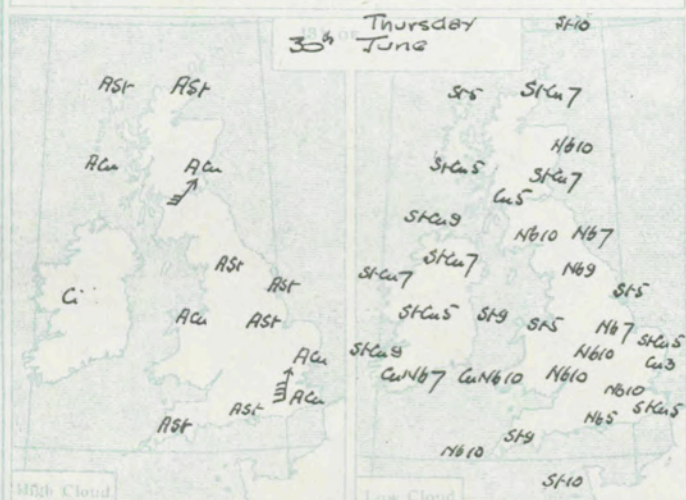 Thursday
30th June
ASt ASt
ACu ACu
ASt
ASt
Ci
ACu ASt
ACu
ACu
ASt
ASt
High Cloud
St10
St5 StCu7
Nb10
StCu5 StCu7
Cu5
StCu9
Nb10 Nb7
StCu7 Nb9
StCu7
St5
StCu5 St9 St5 Nb7
StCu5
StCu9 Nb10 Cu3
CuNb7 CuNb10 Nb10
Nb10
StCu5
Nb5
St9
Nb10
St10
Low Cloud